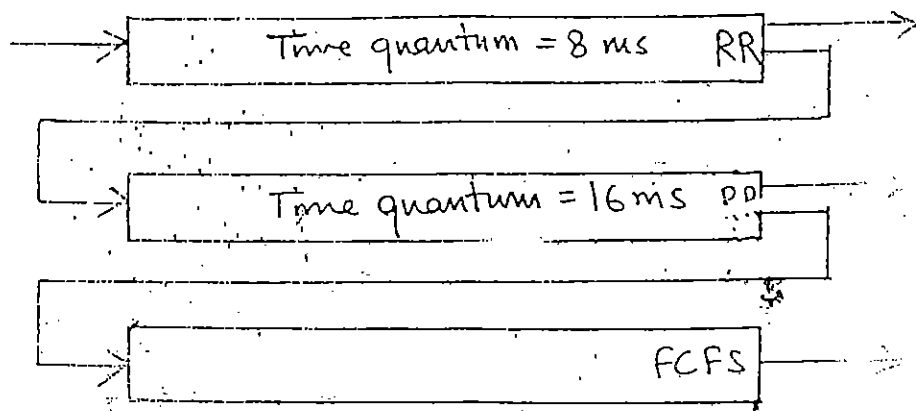 Time quantum = 8 ms RR
Time quantum = 16 ms
FCFS